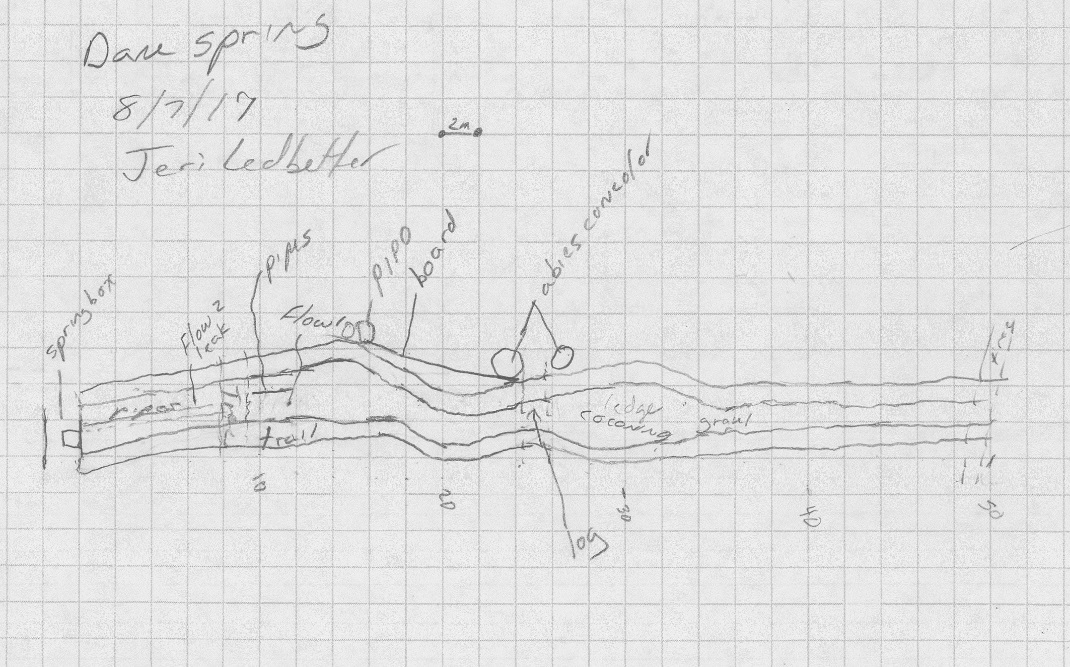 Dane spring
8/7/17
Jeri Ledbetter
2m
springbox
Flow 2
leak
pipes
Flow 1
PIPO
board
abies concolor
trail
ledge
gravel
log
10
20
30
40
50